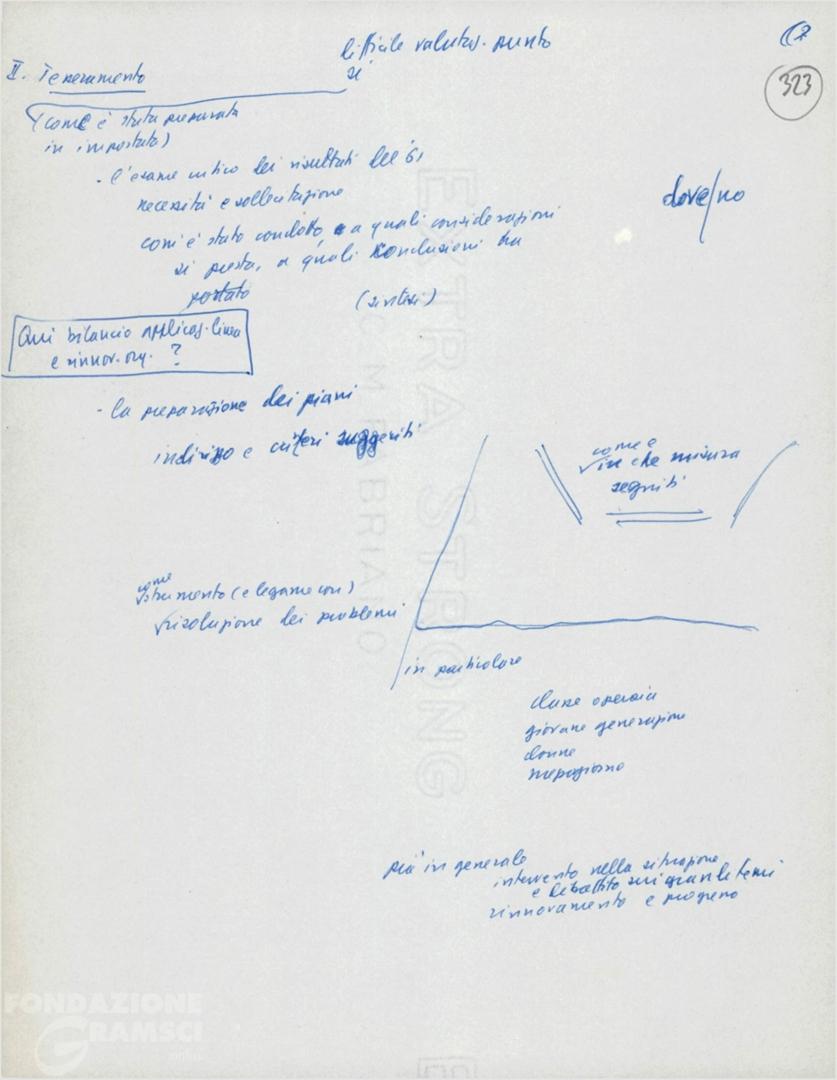 difficile valutaz. punto
sì
(2
323
II. Tesseramento
(come è stata preparata
in impostata)
- l'esame critico dei risultati del '61
necessità e sollecitazione
com'è stato condotto a quali considerazioni
si presta, a quali conclusioni ha
portato
(sintesi)
dove/no
Qui bilancio applicaz. linea
e rinnov. org. ?
- la preparazione dei piani
indirizzo e criteri suggeriti
come è
in che misura
seguiti
come
strumento (e legame con)
risoluzione dei problemi
in particolare
classe operaia
giovane generazione
donne
mezzogiorno
più in generale
intervento nella situazione
e dibattito sui grandi temi
rinnovamento e progresso
EXTRA STRONG
C M FABRIANO
FONDAZIONE
GRAMSCI
onlus